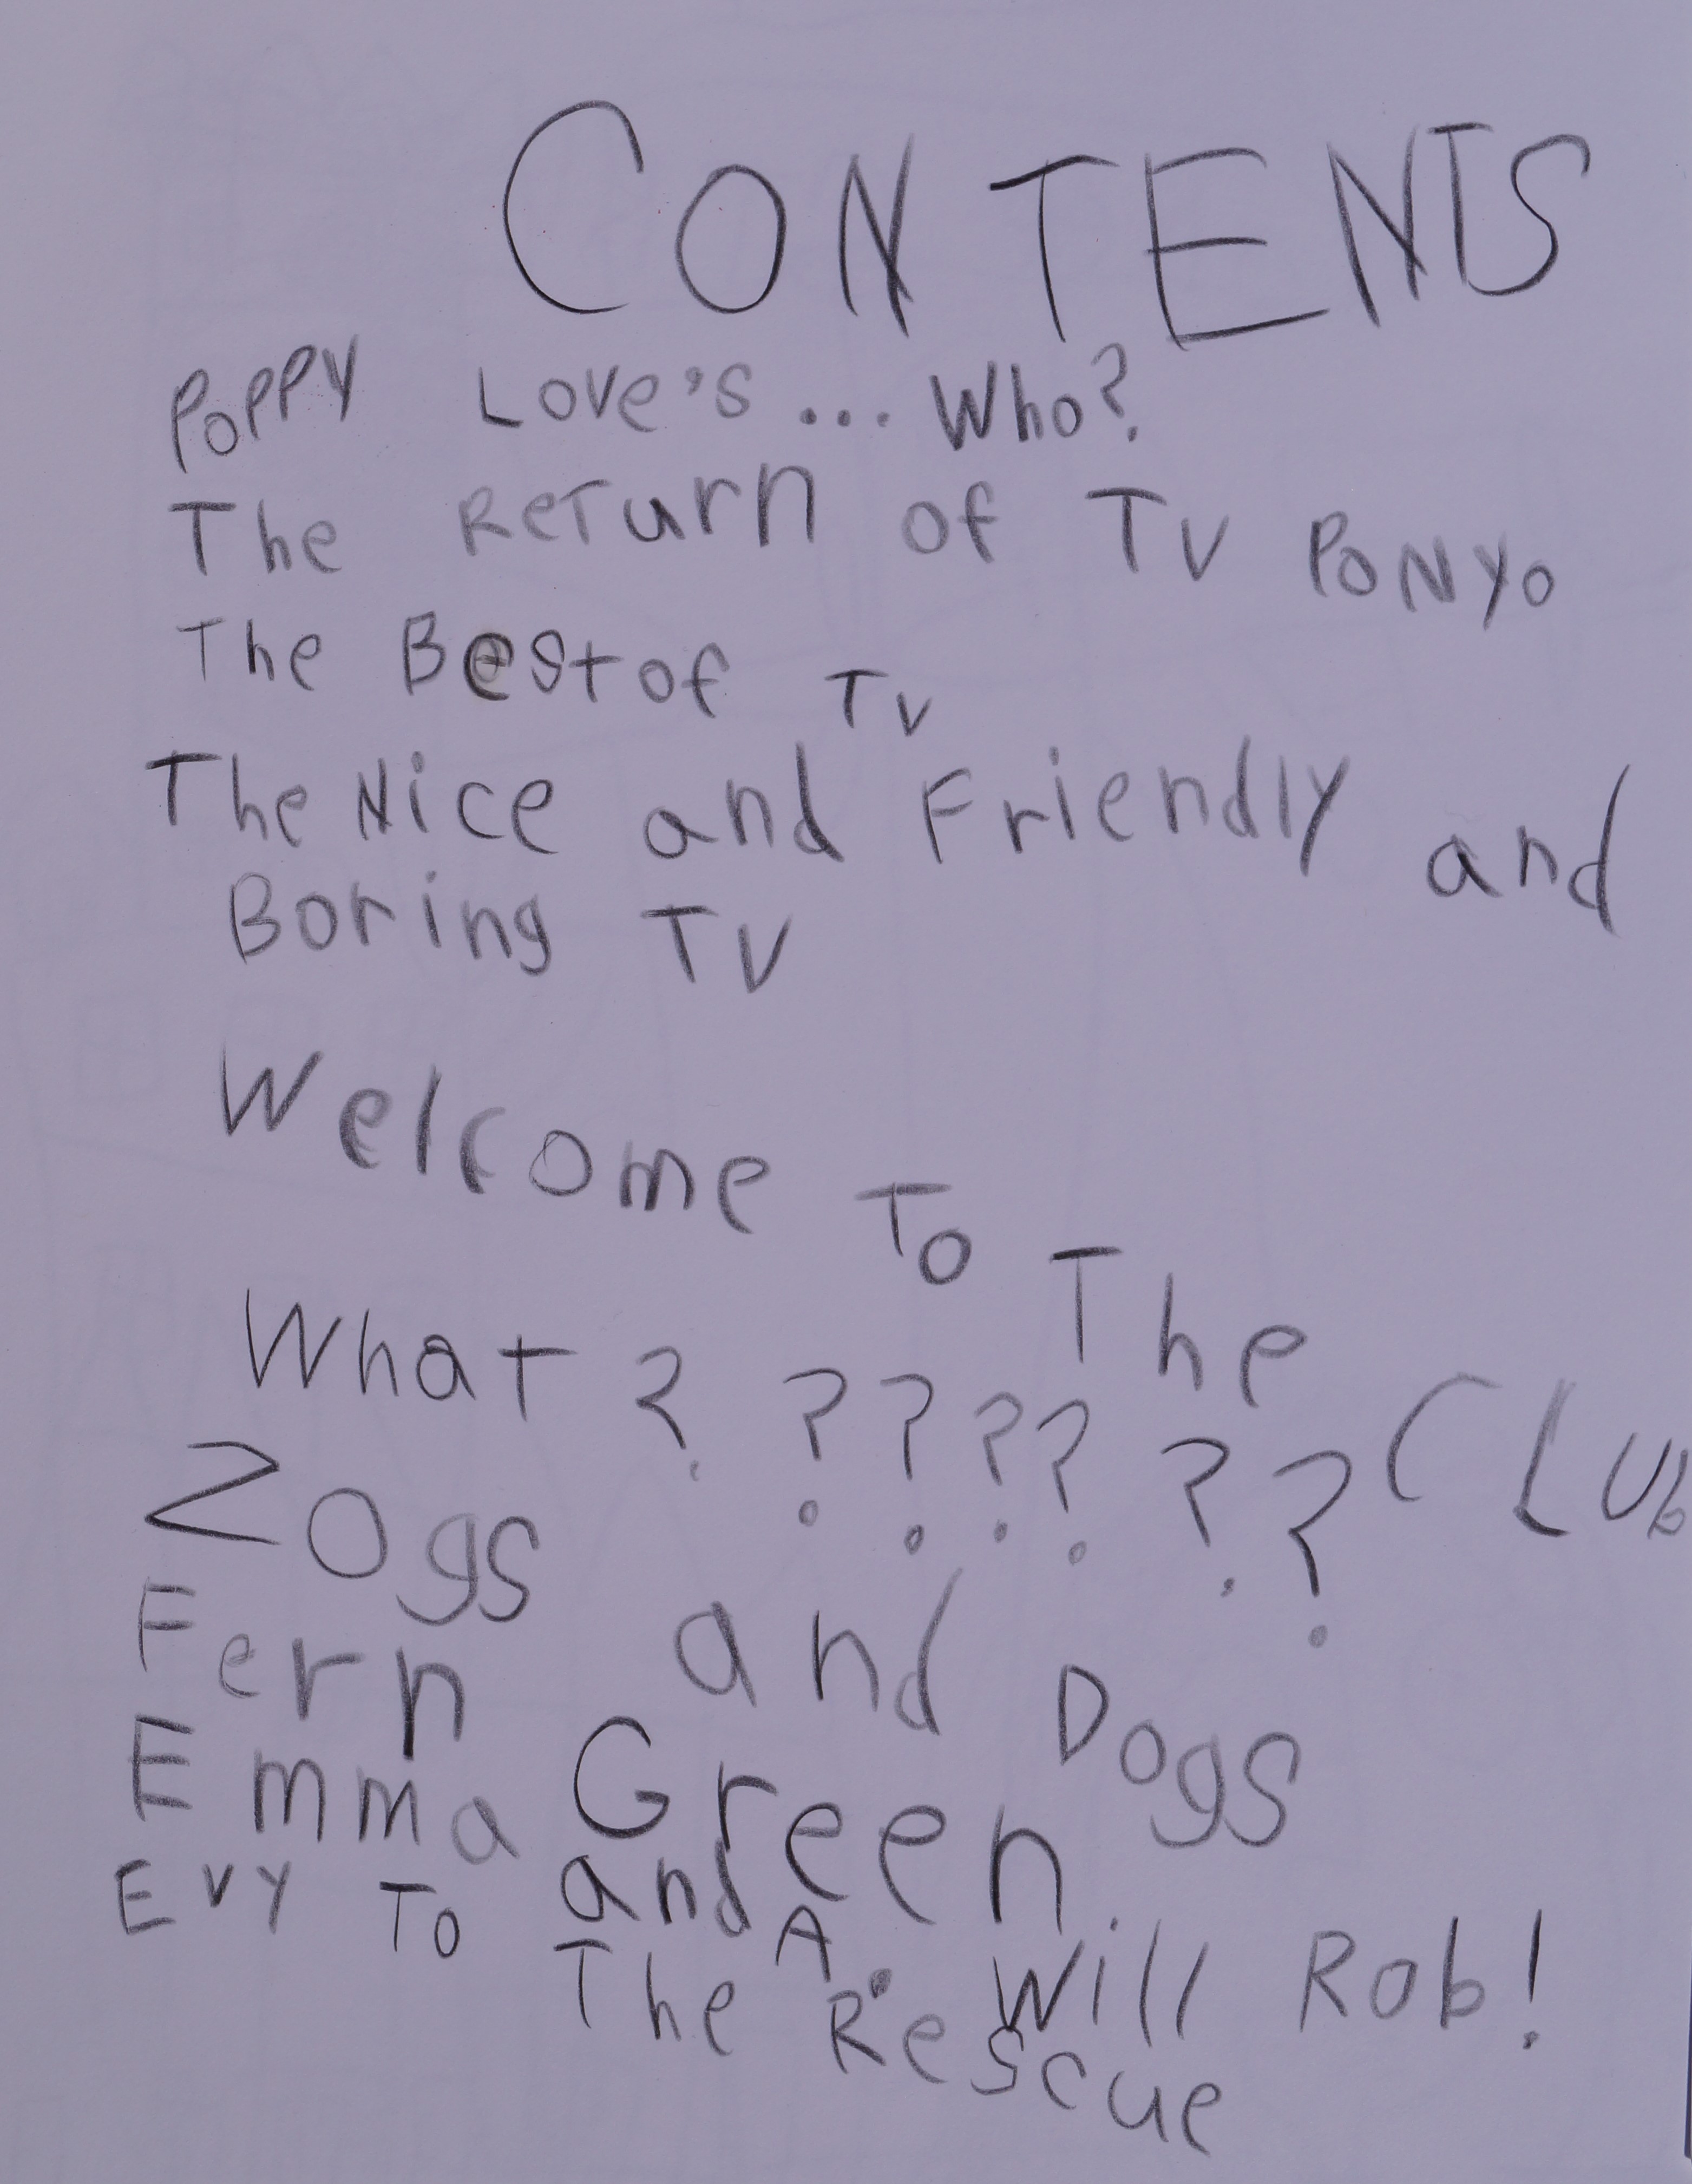 CONTENTS
POPPY Love's ... Who?
The ReTurn of TV PONYO
The Best of TV
The Nice and Friendly and
Boring TV
Welcome To The CLUb
What ? ? ? ? ? ? ?
Zogs and Dogs
Fern Green
Emma and A. Will Rob!
EVY To The Rescue